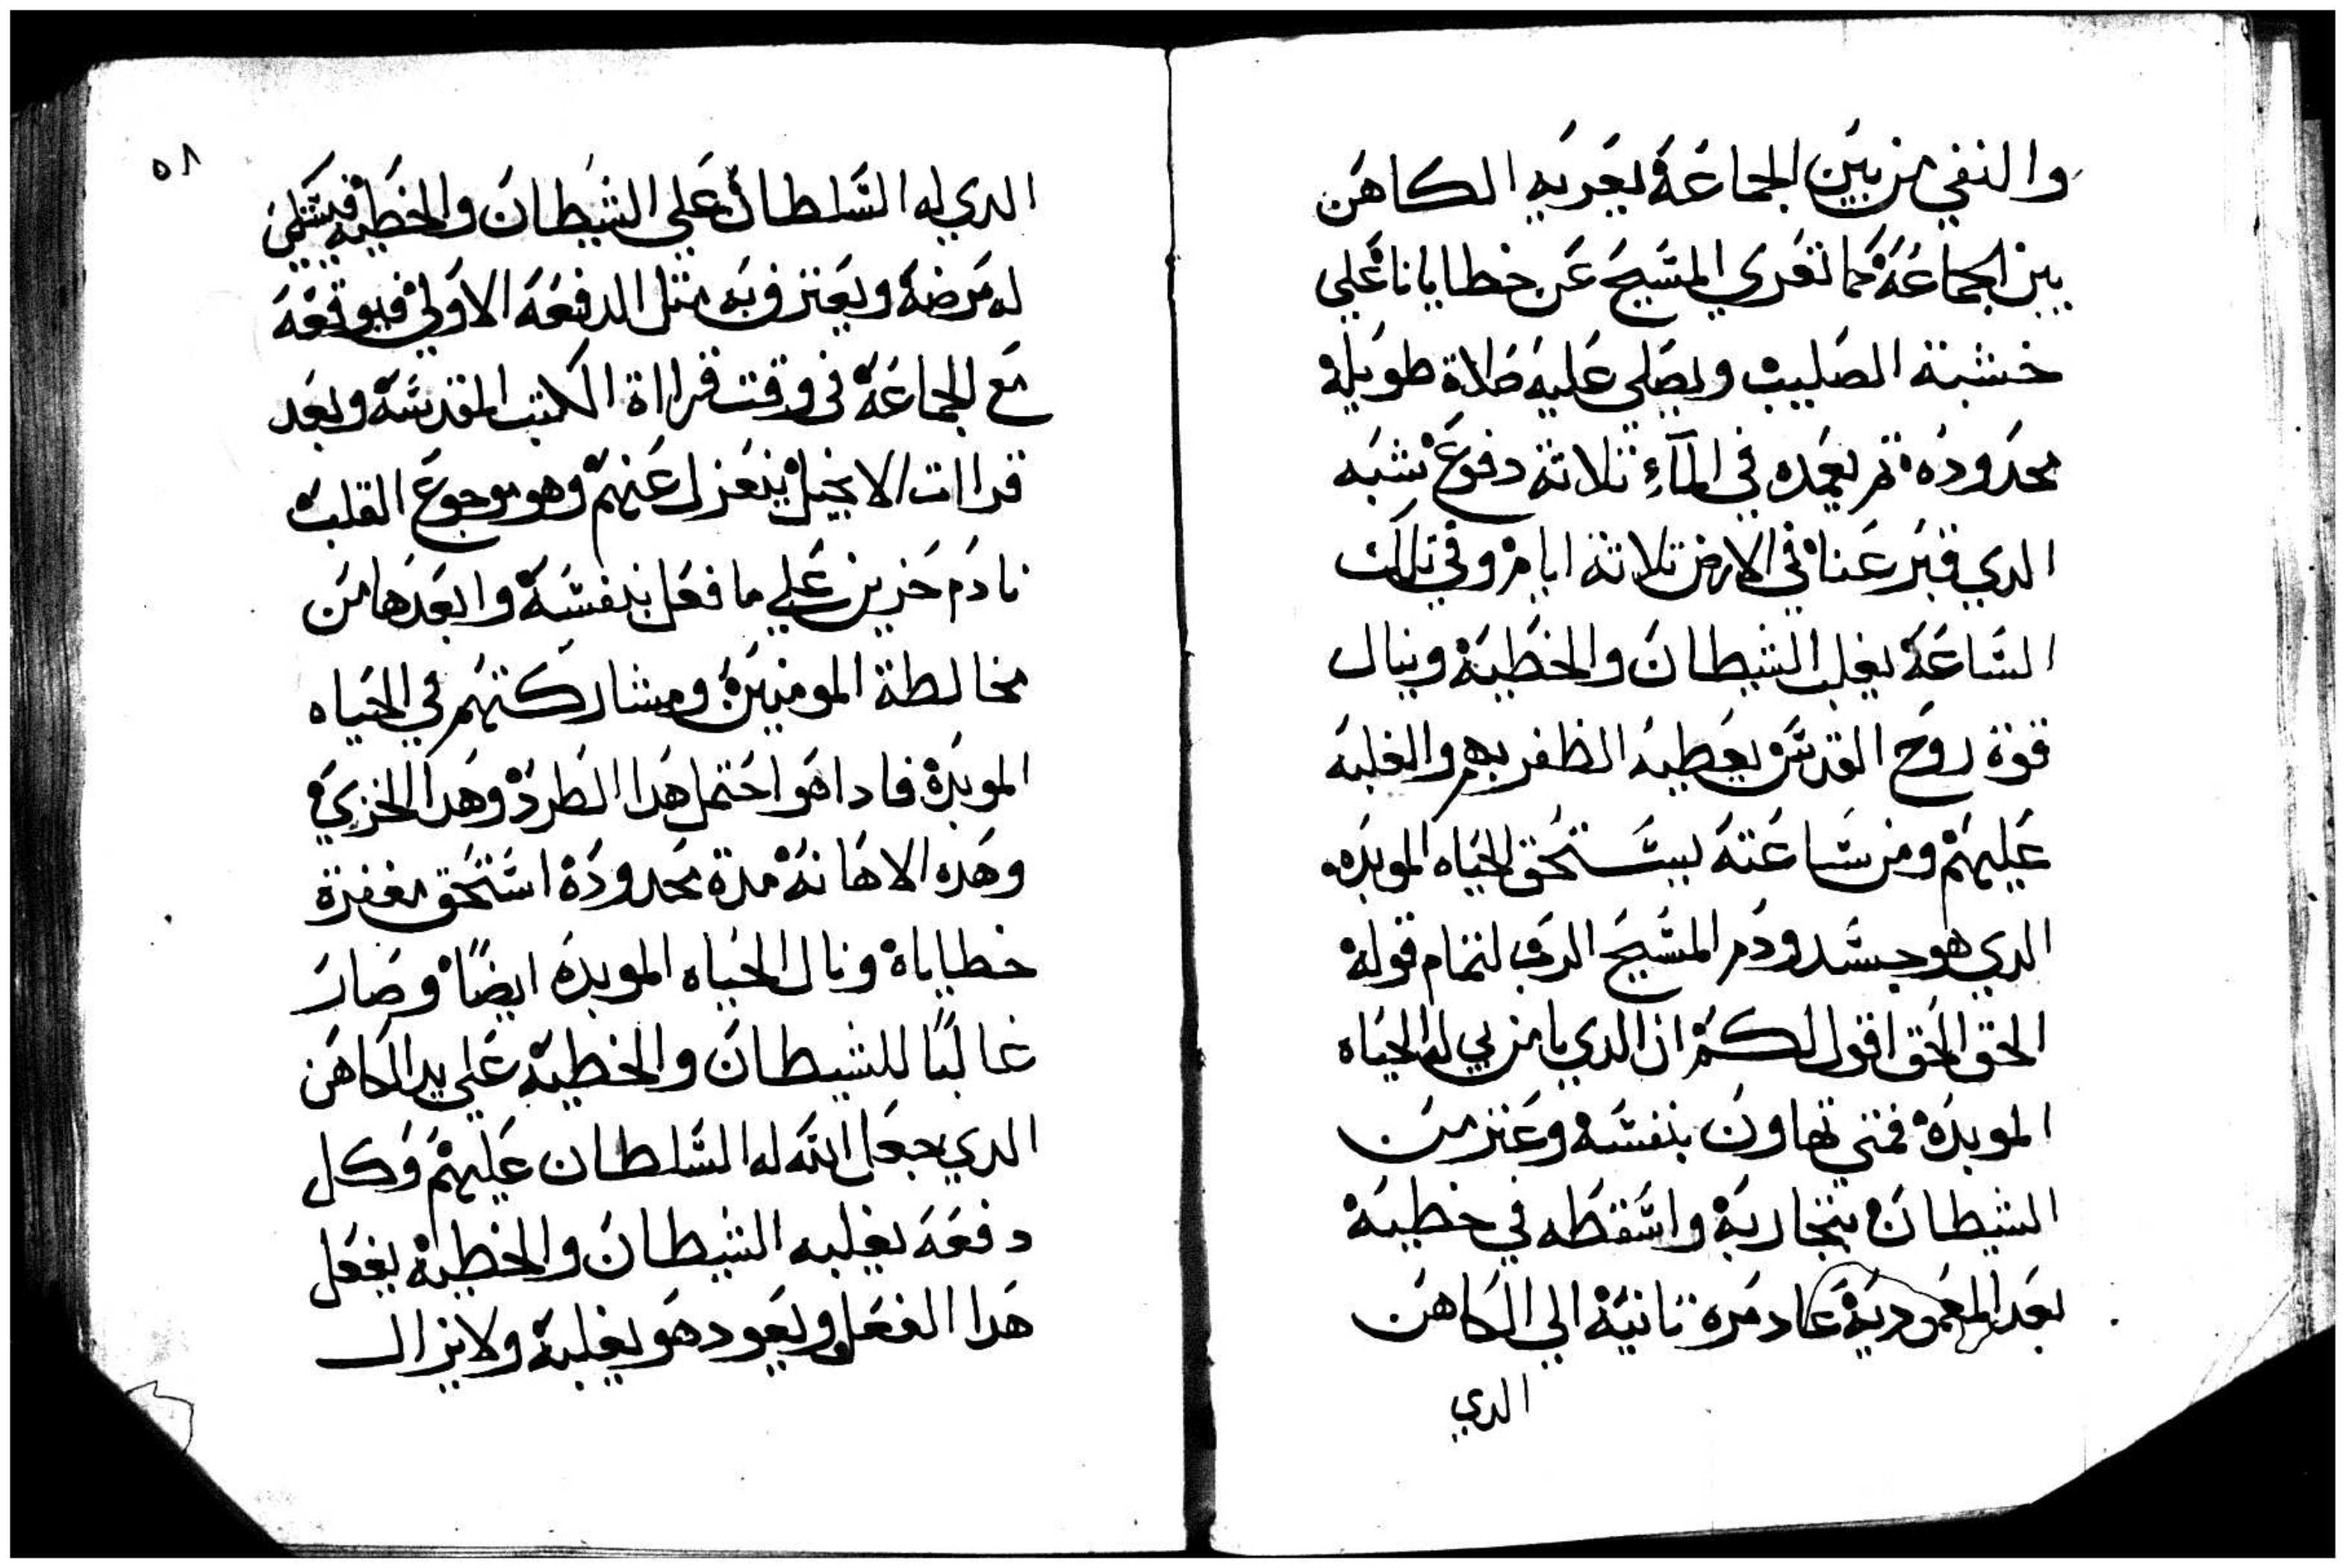 والنفي من بين الجماعة يعريه الكاهن
بين الجماعة كما تعري المسيح عن خطايانا علي
خشبة الصليب ويصلي عليه صلاة طويله
محدوده تم يعمده في المآء تلاتة دفوع شبه
الدي قبر عنا في الارض تلاتة ايام وفي تلك
الساعة يغلب الشيطان والخطية وينال
قوة روح القدس ويعطيه الظفر بهم والغلبه
عليهم ومن ساعته يستحق الحياه الموبده
الدي هو جسد ودم المسيح الرب لتمام قوله
الحق الحق اقول لكم ان الدي يامن بي له الحياه
الموبده فمتي تهاون بنفسه وعتر من
الشيطان بتجاربة واسقطه في خطية
بعد المعمودية عاد مره تانية الي الكاهن
الدي
٥٨
الدي له السلطان علي الشيطان والخطية فيشتكي
له مرضه ويعترف به متل الدفعه الاولي فيوقفه
مع الجماعة في وقت قرااة الكتب المقدسة وبعد
قراات الانجيل ينعزل عنهم وهو موجوع القلب
نادم حزين علي ما فعل بنفسه وابعدها من
مخالطة المومنين ومشاركتهم في الحياه
الموبده فادا هو احتمل هدا الطرد وهدا الخزي
وهده الاهانه مدة محدودة استحق مغفرة
خطاياه ونال الحياه الموبده ايضًا وصار
غالبًا للشيطان والخطية علي يد الكاهن
الدي جعل الله له السلطان عليهم وكل
دفعه يغلبه الشيطان والخطية يفعل
هدا الفعل ويعود هو يغلبه ولا يزال